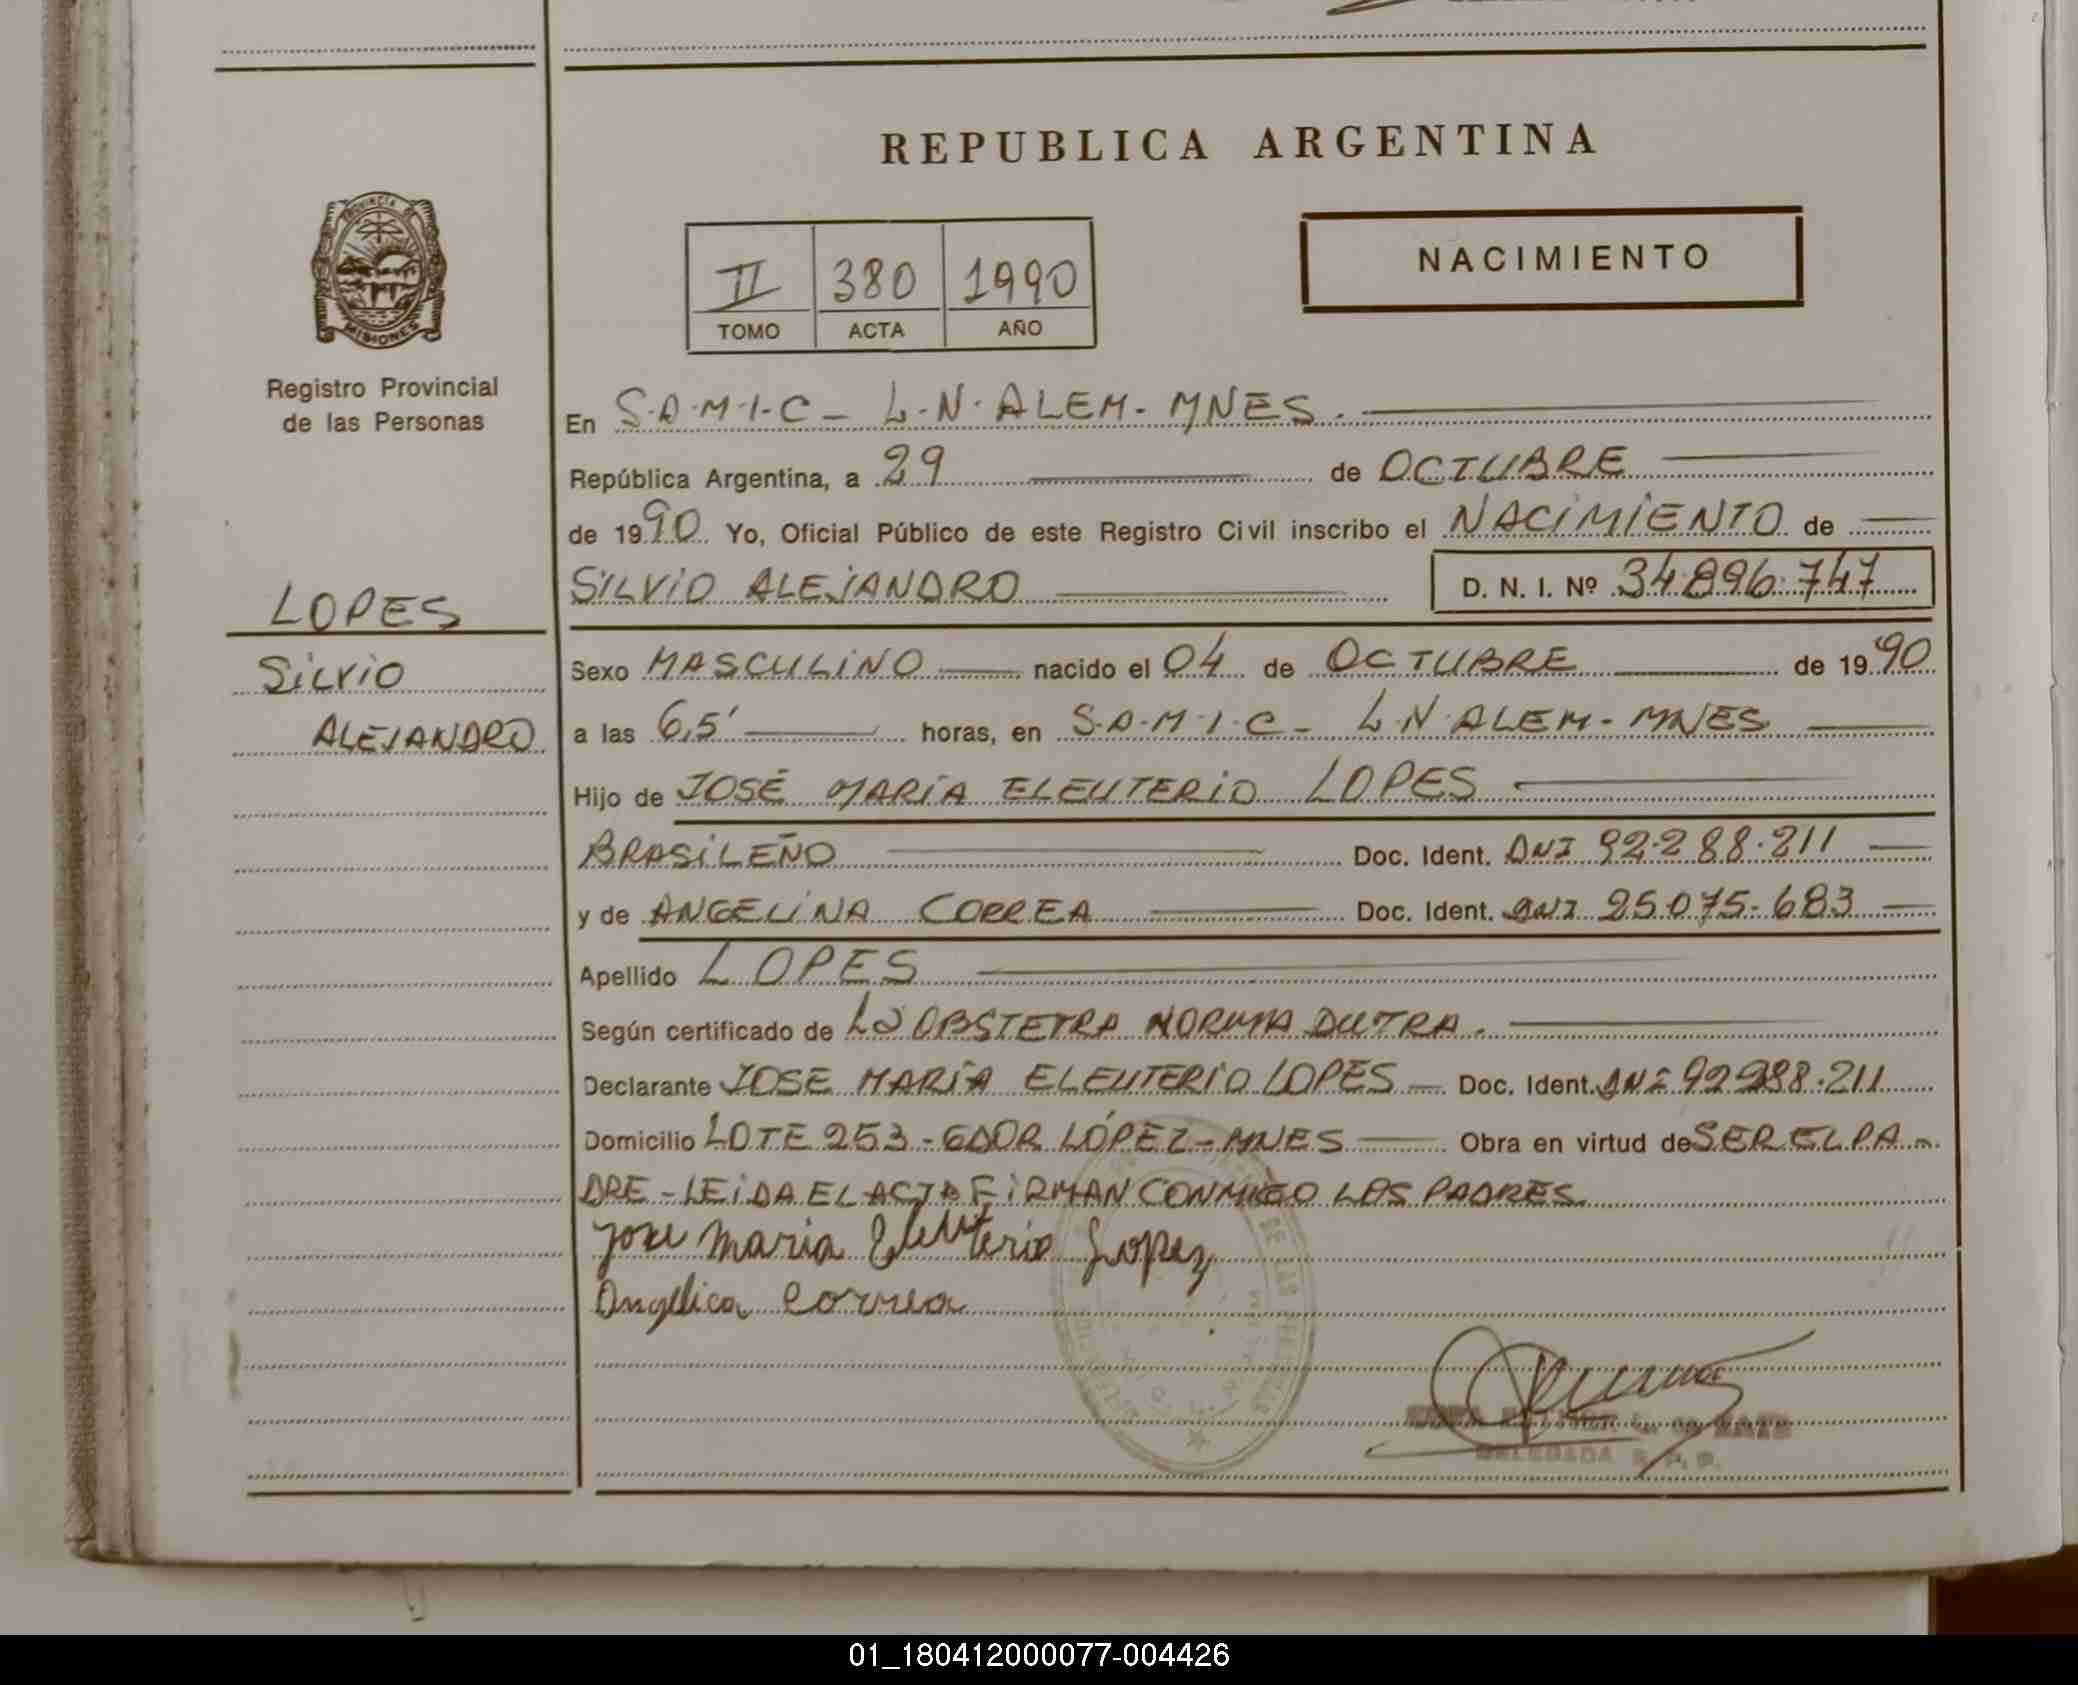 REPUBLICA ARGENTINA
PROVINCIA DE
MISIONES
Registro Provincial
de las Personas
II 380 1990
TOMO ACTA AÑO
NACIMIENTO
En S.A.M.I.C - L.N.ALEM - MNES.
República Argentina, a 29 de OCTUBRE
de 1990 Yo, Oficial Público de este Registro Civil inscribo el NACIMIENTO de
SILVIO ALEJANDRO D. N. I. Nº 34.896.747
LOPES
SILVIO
ALEJANDRO
Sexo MASCULINO nacido el 04 de OCTUBRE de 1990
a las 6,5' horas, en S.A.M.I.C - L.N.ALEM - MNES
Hijo de JOSÉ MARÍA ELEUTERIO LOPES
BRASILEÑO Doc. Ident. DNI 92.288.211
y de ANGELINA CORREA Doc. Ident. DNI 25.075.683
Apellido LOPES
Según certificado de OBSTETRA NORMA DUTRA.
Declarante JOSE MARÍA ELEUTERIO LOPES Doc. Ident. DNI 92288.211
Domicilio LOTE 253 - GDOR LÓPEZ - MNES Obra en virtud de SER EL PA
DRE - LEIDA EL ACTA FIRMAN CONMIGO LOS PADRES.
Jose Maria Eleuterio Lopez
Angelica Correa
DELEGADA R. P. P.
01_180412000077-004426